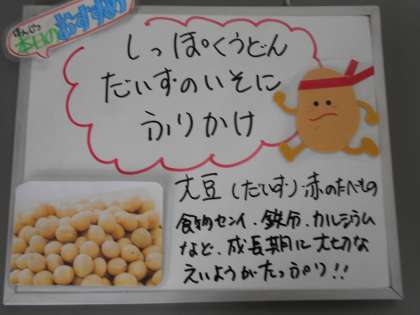 ほんじつ
本日のおすすめ
しっぽくうどん
だいずのいそに
ふりかけ
大豆(だいず):赤のたべもの
食物センイ、鉄分、カルシウム
など、成長期に大切な
えいようがたっぷり!!